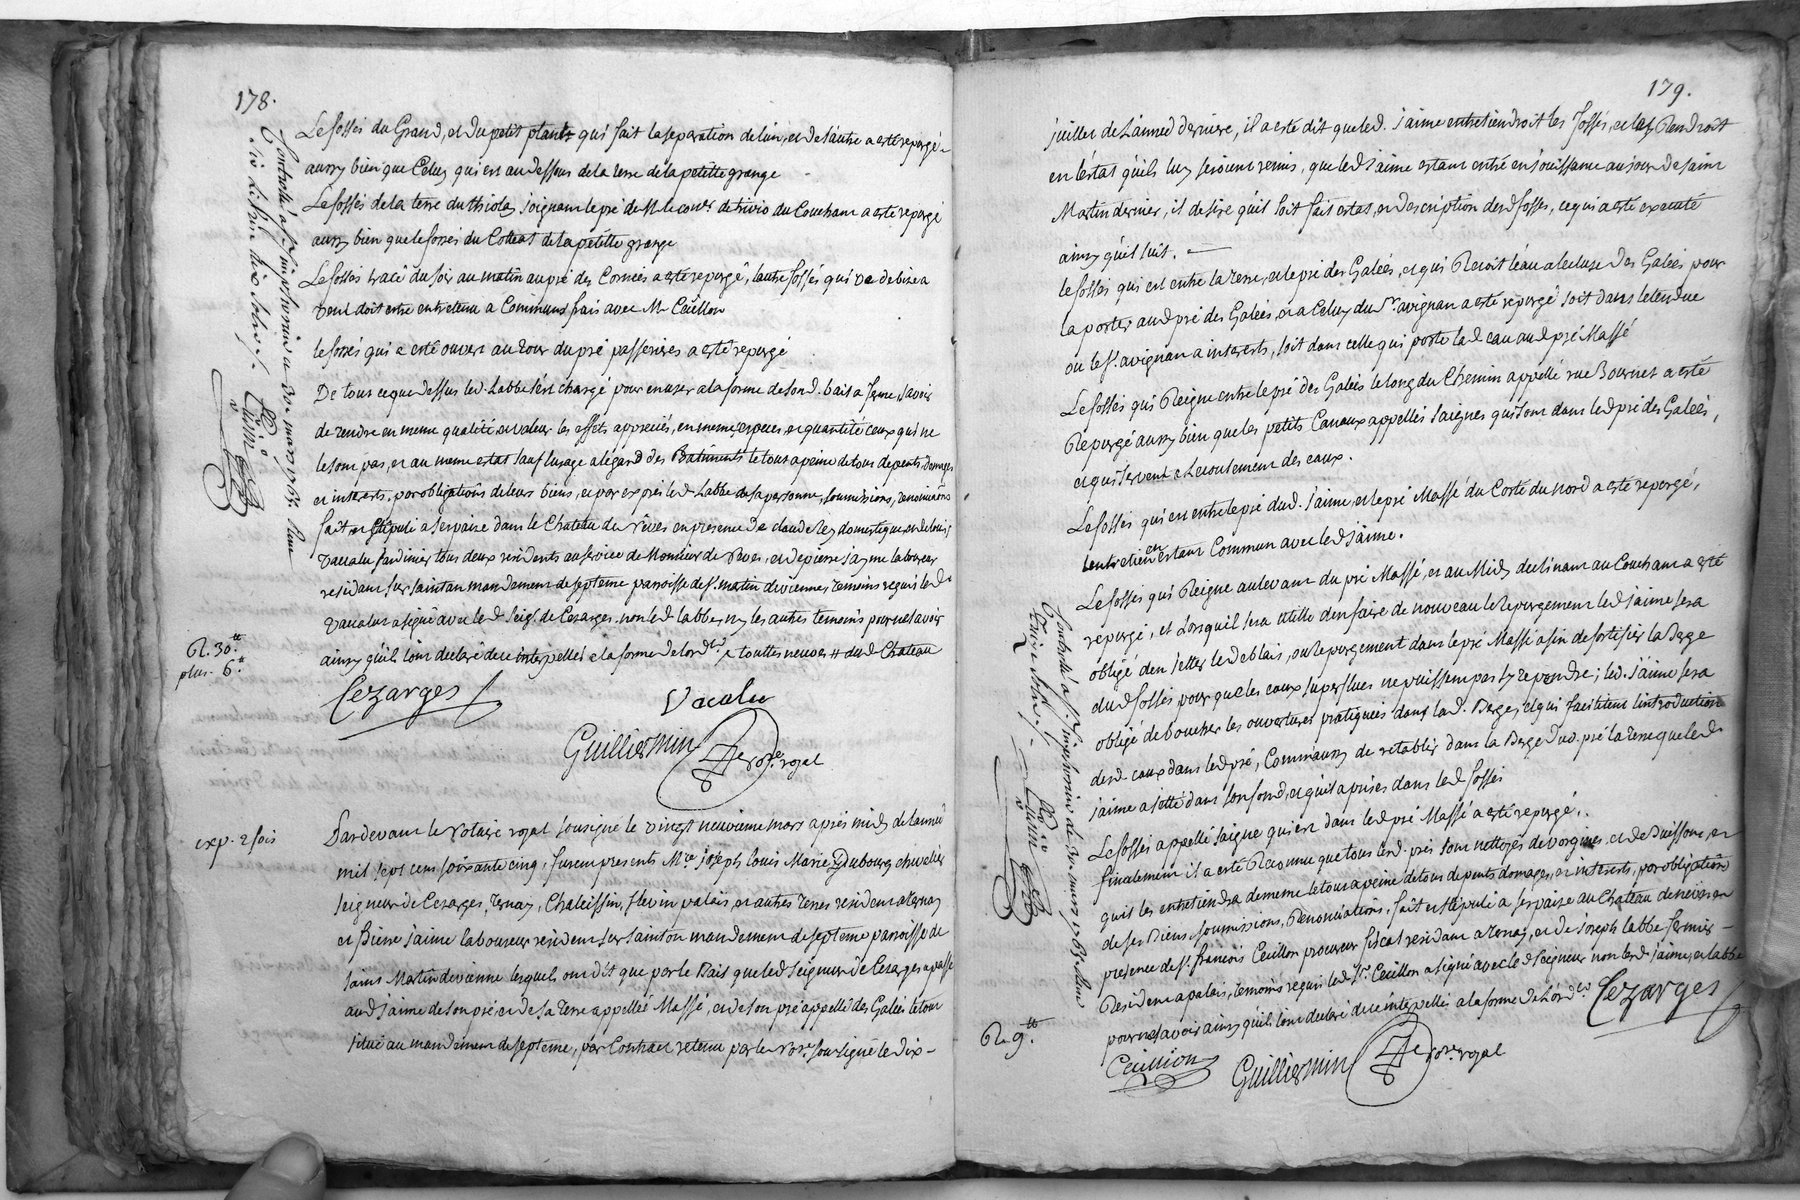 178.
Le fossés du Grand, et du petit plant qui fait la separation de l'un, et de l'autre a esté repurgé
aussy bien que Celuy qui est au dessous de la terre de la petitte grange
Le fossés de la terre du thiolay joignant le pré de M. le du Couchant a esté repurgé
aussy bien que le fossés du Coteau de la petitte grange
Le fossés tracé du soir au matin au pré des Cornées a esté repurgé, l'autre fossés qui va de bize a
vent doit estre entretenu a Communs frais avec Mr Ceüillon
le fossés qui a esté ouvert au tour du pré passerises a esté repurgé
De tout ce que dessus led. Labbe s'est chargé pour en user a la forme de son d. bail a ferme, savoir
de rendre en meme qualité et valeur les effets appretiés, en meme especes et quantité ceux qui ne
le sont pas, et au meme estat sauf l'usage a légard des Batiments le tout a peine de tous depents, Domages
et interests, par obligations de leurs biens, et par exprés led. Labbe de sa personne, soumissions, renonciations
fait et stipulé a Serpaize dans le Chateau de en presence de claude Rey domestique, et de Louis
Vacalu Jardinier tous deux residents au service de Monsieur de et de pierre Jayme laboureur
residant sur saint an mandement de septeme parroisse de St. martin de vienne, temoins requis led.
Vacalu a signé avec led. Seigr. de Cezarges non led. Labbe, ny les autres temoins pour ne savoir
ainsy qu'ils l'ont declaré de ce interpellés a la forme de lordce / touttes neuves # dud. Chateau
R. 30.tt
plus. 6.tt
Cezarges
Vacalu
Guilliermin
re royal
Controllé a St. Simphorien le 30e mars 1765. Reçu
exp. 2 fois
Pardevant le Notaire royal sousigné le vingt neuvieme mars aprés midy de l'année
mil sept cent soixante cinq, furent presents Mre. joseph louis Marie Dubourg chevalier
seigneur de Cezarges, ternay, Chaleissin, flevin palais, et autres terres resident a ternay
et Pierre jaime laboureur resident sur sainton mandement de septeme parroisse de
saint Martin de vienne lesquels ont dit que par le Bail que led. Seigneur de Cezarges a passé
aud. jaime de son pré et de sa terre appellés Massé, et de son pré appellé des Galées le tout
situé au mandement de septeme, par Contract retenu par le nore. sousigné le dix-
179.
juillet de l'année derniere, il a esté dit que led. jaime entretiendroit les fossés, et les Rendroit
en l'éstat qu'ils luy seroient remis, que led. jaime estant entré en jouissance au jour de saint
Martin dernier, il desire qu'il soit fait estat, et description desd. fossés, ce qui a esté executé
ainsy qu'il suit.
le fossés qui est entre la terre, et le pré des Galées, et qui Recoit léau a lecluse des Galées pour
la porter aud. pré des Galées, et a Celuy du Sr. avignan a esté repurgé soit dans letendue
ou le Sr. avignan a interests, soit dans celle qui porte lad. eau aud. pré Massé
Le fossés qui Reigne entre le pré des Galées le long du Chemin appellé rue Bournet a esté
Repurgé aussy bien que les petits Canaux appellés saignes qui sont dans led. pré des Galées,
et qui servent a lecoulement des eaux.
Le fossés qui est entre le pré dud. jaime, et le pré Massé du Costé du nord a esté repurgé,
l'entretien en estant Commun avec led. jaime.
Le fossés qui Reigne au levant du pré Massé, et au Midy declinant au Couchant a esté
repurgé, et lorsqu'il sera utille d'en faire de nouveau le Repurgement led. jaime sera
obligé d'en jetter le deblais, ou Repurgement dans le pré Massé afin de fortifier la Berge
dud. fossés pour que les eaux superflues ne puissent pas s'y rependre; led. jaime sera
obligé de boucher les ouvertures pratiquées dans lad. Berge, et qui facilitent l'introduction
desd. eaux dans led. pré, Comm'aussy de retablir dans la Berge dud. pré la terre que led.
jaime a jetté dans son fond, et qu'il a prises dans led. fossés
Le fossés appellé saigne qui est dans led. pré Massé a esté repurgé.
finalement il a esté Reconnu que tous lesd. prés sont nettoyés de vorgines et de Buissons, et
qu'il les entretiendra de meme le tout a peine de tous depents domages, et interests, par obligation
de ses Biens, soumissions, Renonciations, fait et stipulé a serpaize au Chateau de en
presence de Sr. francois Ceüillon procureur fiscal residant a ternay, et de joseph labbe fermier
Resident a palais, temoins requis led. Sr. Ceüillon a signé avec led. Seigneur non led. jaime, et labbe
pour ne savoir ainsy qu'ils l'ont declaré de ce interpellés a la forme de l'ordce Cezarges
R. 9.tt
Ceüillon
Guilliermin
nore. royal
Controllé a St. Simphorien le 30e mars 1765. Reçu